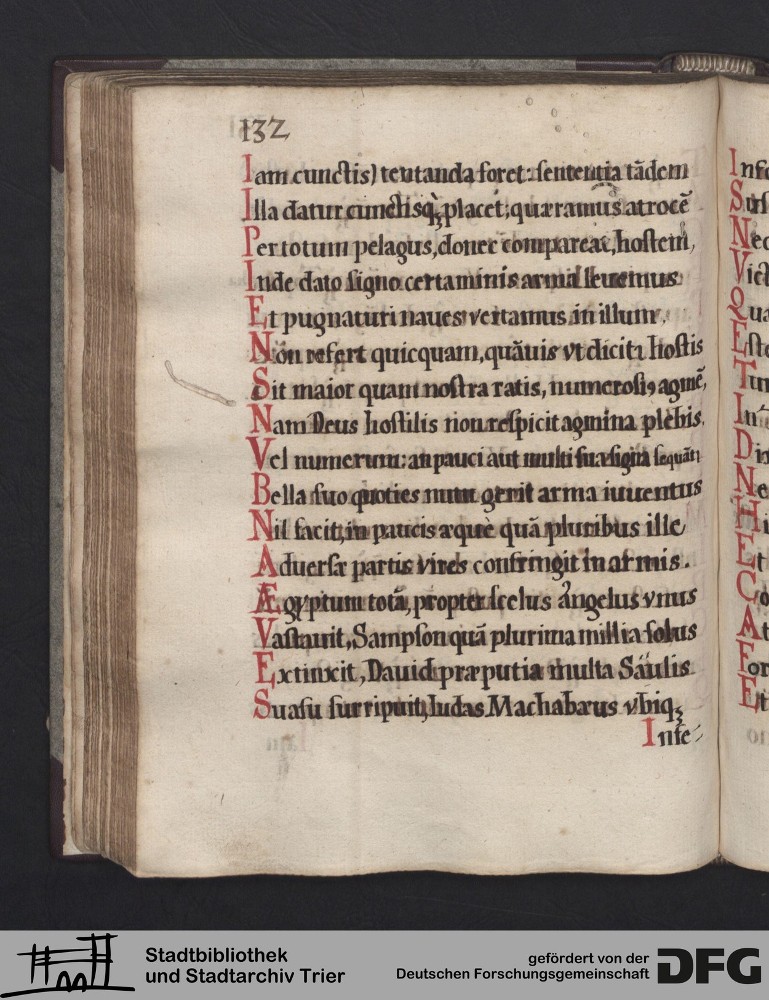 132
Iam cunctis) tentanda foret: sententia tādem
Illa datur cunctisq; placet; quæramus atrocē
Per totum pelagus, donec compareat, hostem,
Inde dato signo certaminis arma leuemus
Et pugnaturi naues vertamus in illum.
Non refert quicquam, quāuis vt dicit: hostis
Sit maior quam nostra ratis, numerosiꝰ agmē,
Nam Deus hostilis non respicit agmina plebis.
Vel numerum: an pauci aut multi sua signa sequātr
Bella suo quoties num gerit arma iuuentus
Nil facit, in paucis æquè quā pluribus ille
Aduersæ partis vires confringit in armis.
Ægyptum totā, propter scelus Angelus vnus
Vastauit, Sampson quā plurima millia solus
Extinxit, Dauid præputia multa Saulis
Suasu surripuit, Iudas Machabæus vbiq;
Infe-
Info
S
Nec
Vict
Qua
Esto
Tun
In
Di
Ne
Hi
Et
Co
At
For
Et
Stadtbibliothek
und Stadtarchiv Trier
gefördert von der
Deutschen Forschungsgemeinschaft
DFG